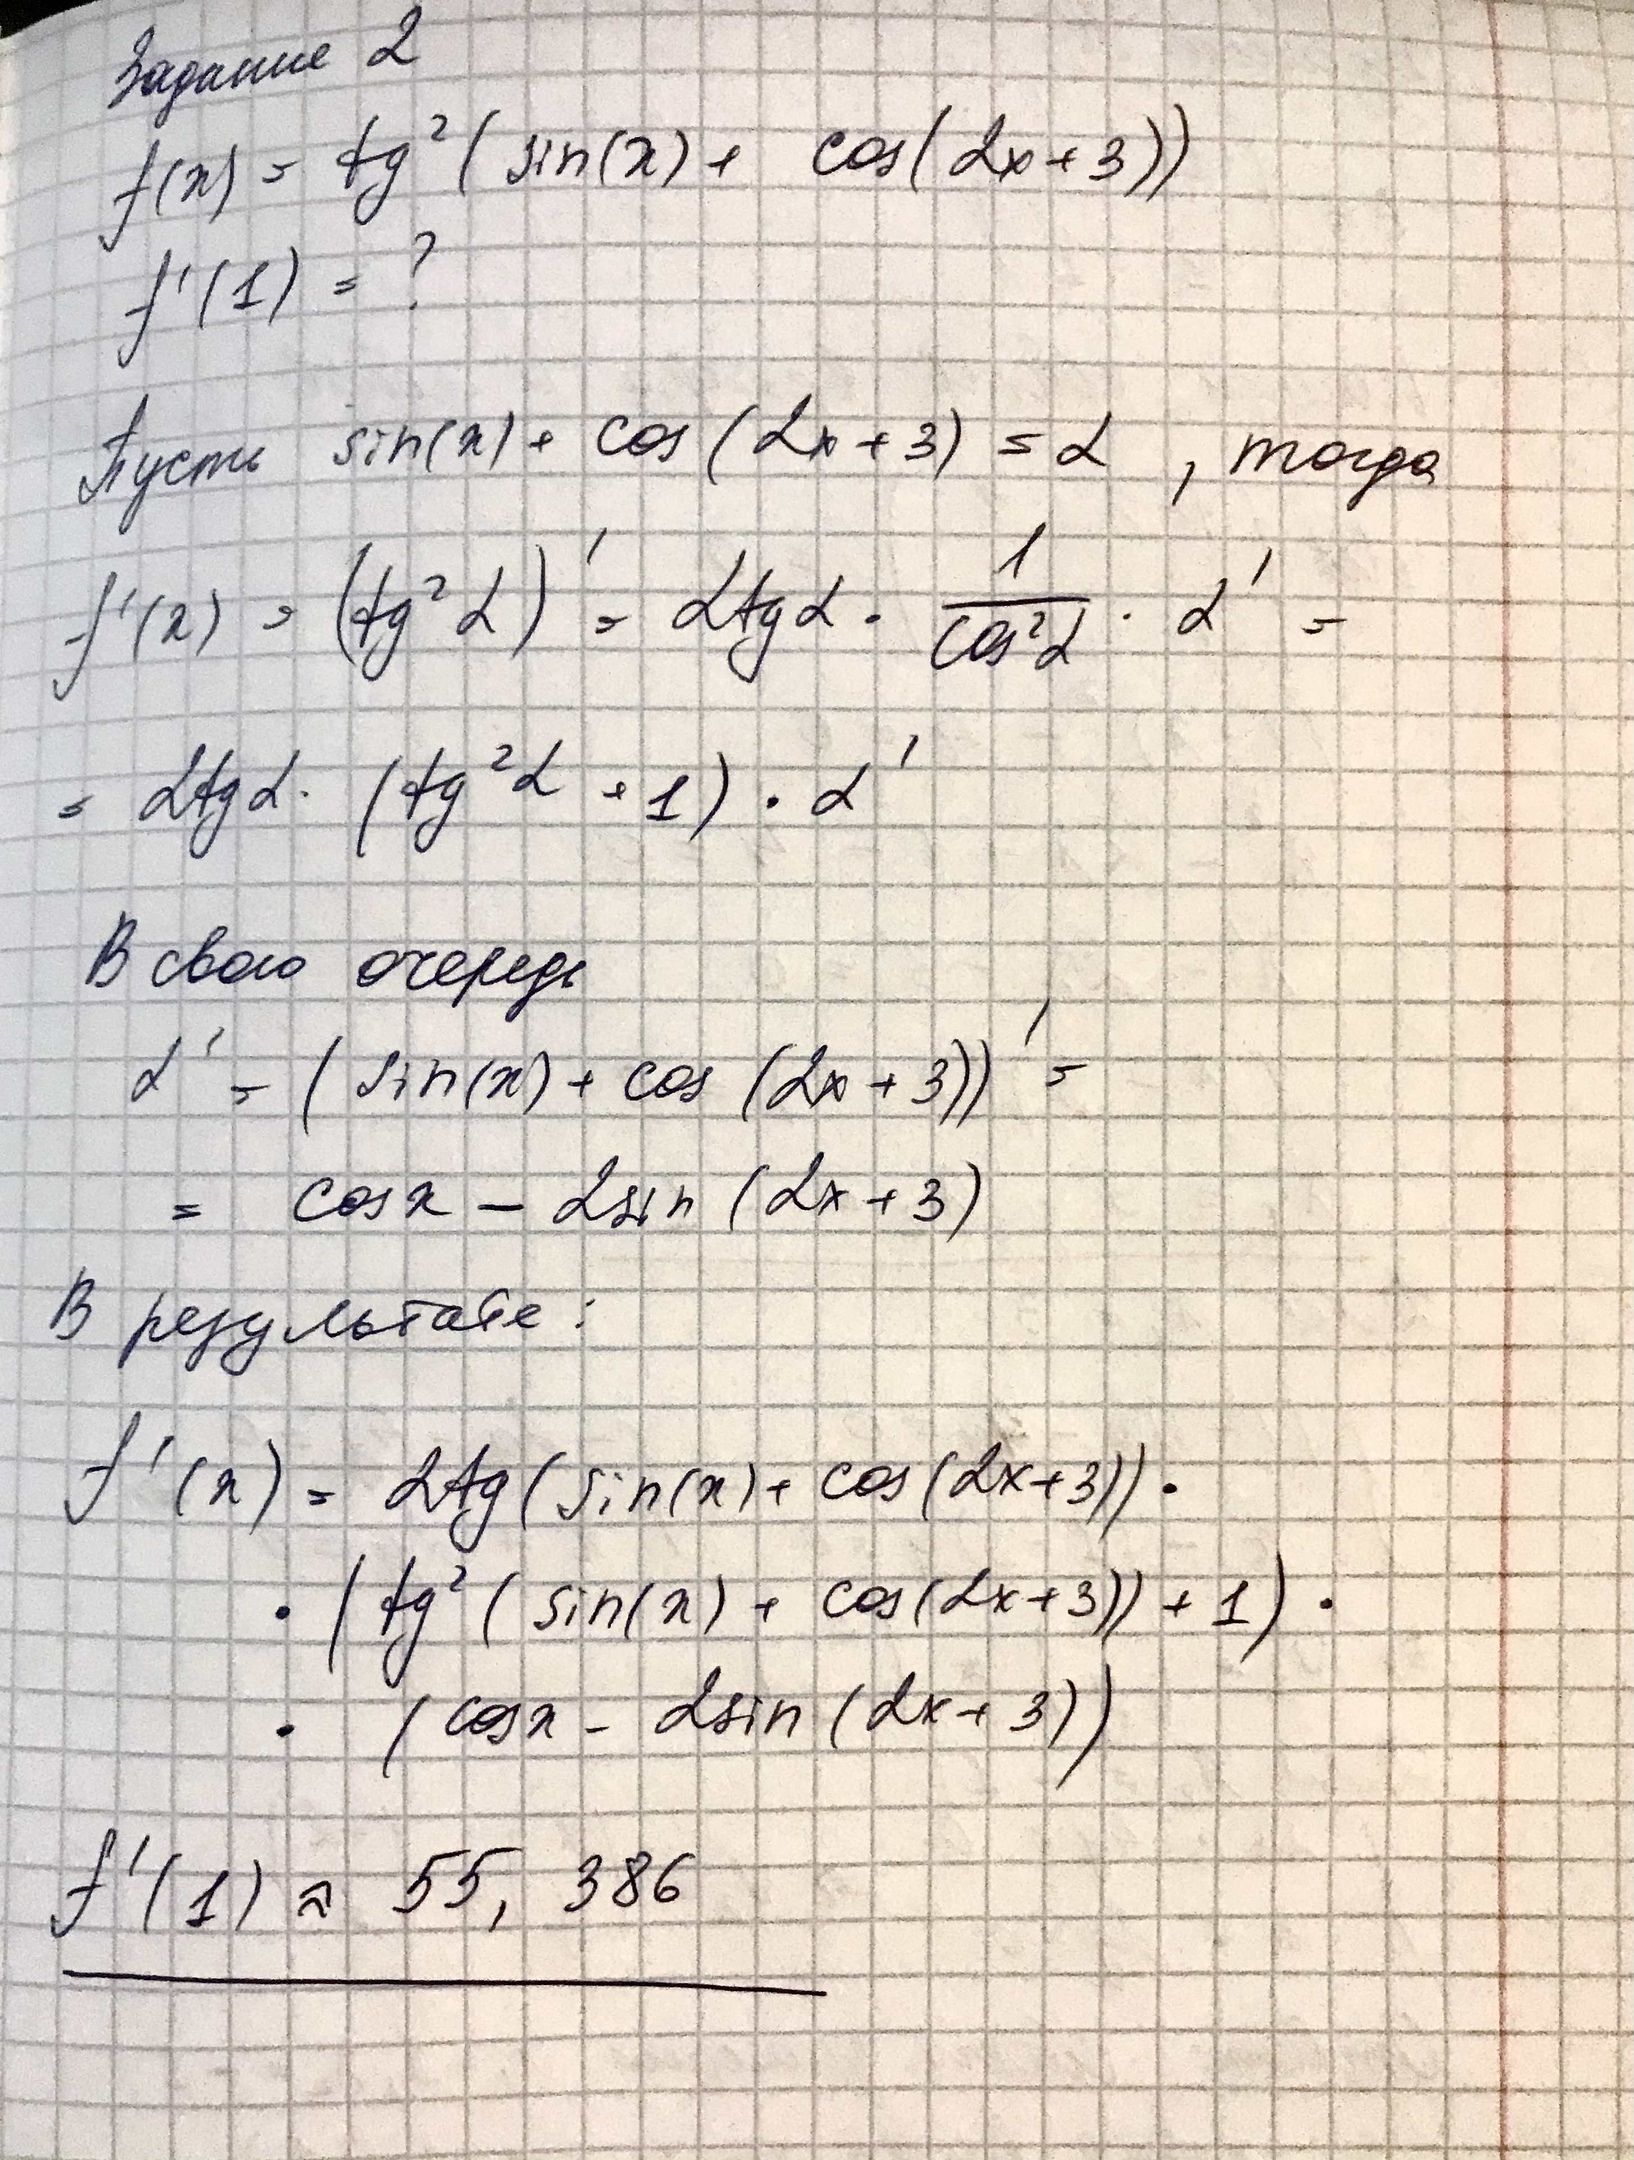 Задание 2
f(x) = tg²(sin(x) + cos(2x+3))
f'(1) = ?
Пусть sin(x) + cos(2x+3) = α, тогда
f'(x) = (tg²α)' = 2tgα · 1/cos²α · α' =
= 2tgα · (tg²α + 1) · α'
В свою очередь
α' = (sin(x) + cos(2x+3))' =
= cosx - 2sin(2x+3)
В результате:
f'(x) = 2tg(sin(x) + cos(2x+3)) ·
· (tg²(sin(x) + cos(2x+3)) + 1) ·
· (cosx - 2sin(2x+3))
f'(1) ≈ 55,386